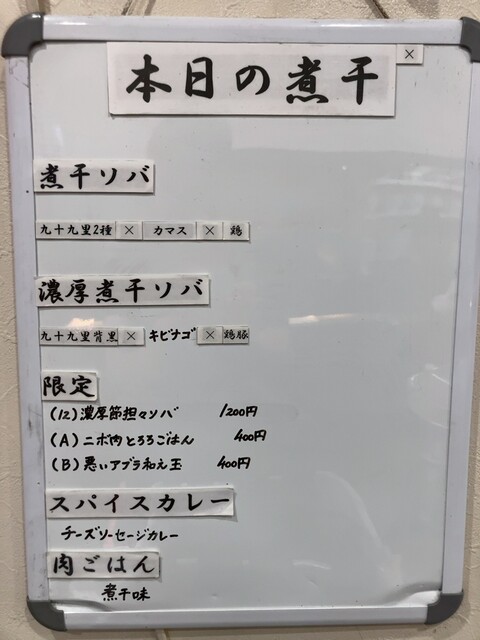 本日の煮干
×
煮干ソバ
九十九里2種 × カマス × 鶏
濃厚煮干ソバ
九十九里背黒 × キビナゴ × 鶏豚
限定
(12)濃厚節担々ソバ 1200円
(A)ニボ肉とろろごはん 400円
(B)悪いアブラ和え玉 400円
スパイスカレー
チーズソーセージカレー
肉ごはん
煮干味